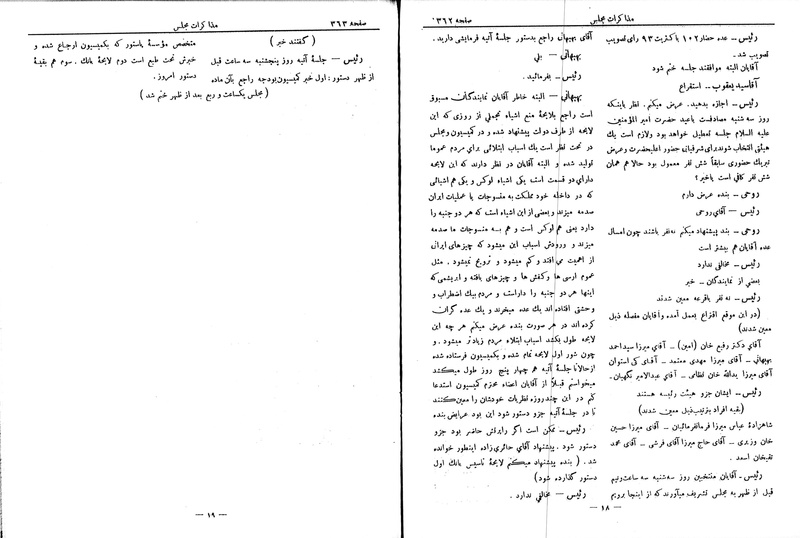 مذاکرات مجلس
صفحه ۳۶۲
رئیس ــ عده حضار ۱۰۲ باکثریت ۹۳ رای تصویب
تصویب شد.
آقایان البته موافقند جلسه ختم شود
آقاسید یعقوب ــ استقراع
رئیس ــ اجازه بدهید. عرض میکنم. نظر باینکه
روز سه شنبه مصادفست باعید حضرت امیر المؤمنین
علیه السلام جلسه تعطیل خواهد بود ولازم است یك
هیئتی انتخاب شوند برای شرفیابی حضور اعلیحضرت وعرض
تبریك حضوری سابقاً شش نفر معمول بود حالا هم همان
شش نفر کافی است یاخیر؟
روحی ــ بنده عرض دارم
رئیس ــ آقای روحی
روحی ــ بنده پیشنهاد میکنم نه نفر باشند چون امسال
عده آقایان هم بیشتر است
رئیس ــ مخالفی ندارد
بعضی از نمایندگان ــ خیر
رئیس ــ نه نفر باقرعه معین شدند
(در این موقع اقتراع بعمل آمده وآقایان مفصله ذیل
معین شدند)
آقای دکتر رفیع خان (امین) ــ آقای میرزا سید احمد
بهبهانی ــ آقای میرزا مهدی معتمد ــ آقای کی استوان
آقای میرزا یدالله خان نظامی ــ آقای عبدالامیر نگهبان.
رئیس ــ ایشان جزو هیئت رئیسه هستند
(بقیه افراد بترتیب ذیل معین شدند)
شاهزادهٔ عباس میرزا فرمانفرمائیان ــ آقای میرزا حسین
خان وزیری ــ آقای حاج میرزا آقای فرشی ــ آقای محمد
تقیخان اسعد.
رئیس ــ آقایان منتخبین روز سه شنبه سه ساعت ونیم
قبل از ظهر به مجلس تشریف میآورند که از اینجا برویم
آقای بهبهانی راجع بدستور جلسهٔ آتیه فرمایشی دارید.
بهبهانی ــ بلی
رئیس ــ بفرمائید.
بهبهانی ــ البته خاطر آقایان نمایندگان مسبوق
است راجع بلایحهٔ منع اشیاء تجملی از روزی که این
لایحه از طرف دولت پیشنهاد شده و در کمیسیون ومجلس
در تحت نظر است یك اسباب ابتلائی برای مردم عموما
تولید شده و البته آقایان در نظر دارند که این لایحه
دارای دو قسمت است یکی اشیاء لوکس و یکی هم اشیائی
که در داخله خود مملکت به منسوجات یا عملیات ایران
صدمه میزند وبعضی از این اشیاء است که هر دو جنبه را
دارد یعنی هم لوکس است و هم بسه منسوجات ما صدمه
میزند و ورودش اسباب این میشود که چیزهای ایرانی
از اهمیت می افتد و کم میشود و ترویج نمیشود. مثل
عموم ارسی ها وکفش ها و چیزهای بافته و ابریشمی که
اینها هر دو جنبه را داراست و مردم بیك اضطراب و
وحشتی افتاده اند یك عده میخرند و یك عده گران
کرده اند در هر صورت بنده عرض میکنم هر چه این
لایحه طول بکشد اسباب ابتلاء مردم زیادتر میشود. و
چون شور اول لایحه تمام شده و بکمیسیون فرستاده شده
از حالا تا جلسه آتیه هم چهار پنج روز طول میکشد
میخواستم قبلاً از آقایان اعضاء محترم کمیسیون استدعا
کنم در این چند روزه نظریات خودشان را معین کنند
تا در جلسهٔ آتیه جزو دستور شود این بود عرایض بنده
رئیس ــ ممکن است اگر راپرتش حاضر بود جزو
دستور شود. پیشنهاد آقای حائری زاده اینطور خوانده
شد. (بنده پیشنهاد میکنم لایحهٔ تأسیس بانك اول
دستور گذارده شود)
رئیس ــ مخالفی ندارد.
ــ ۱۸ ــ
مذاکرات مجلس
صفحه ۳۶۳
(گفتند خیر)
رئیس ــ جلسهٔ آتیه روز پنجشنبه سه ساعت قبل
از ظهر دستور: اول خبر کمیسیون بودجه راجع بآن ماده
متخصص مؤسسهٔ پاستور که بکمیسیون ارجاع شده و
خبرش تحت طبع است دوم لایحهٔ بانك. سوم هم بقیهٔ
دستور امروز.
(مجلس یکساعت و ربع بعد از ظهر ختم شد)
ــ ۱۹ ــ